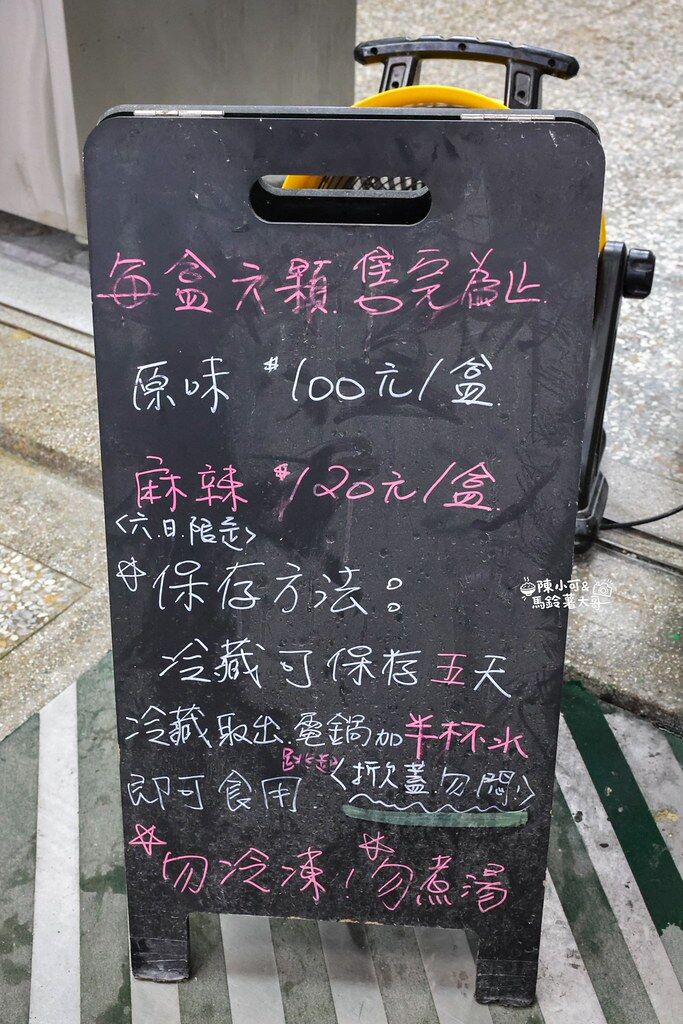 每盒六顆.售完為止.
原味 $100元/盒.
麻辣 $120元/盒.
<六.日.限定>
☆保存方法:
冷藏可保存五天
冷藏取出.電鍋加半杯水
跳起
即可食用 <掀蓋.勿悶!>
☆勿冷凍!☆勿煮湯
陳小可&
馬鈴薯大哥